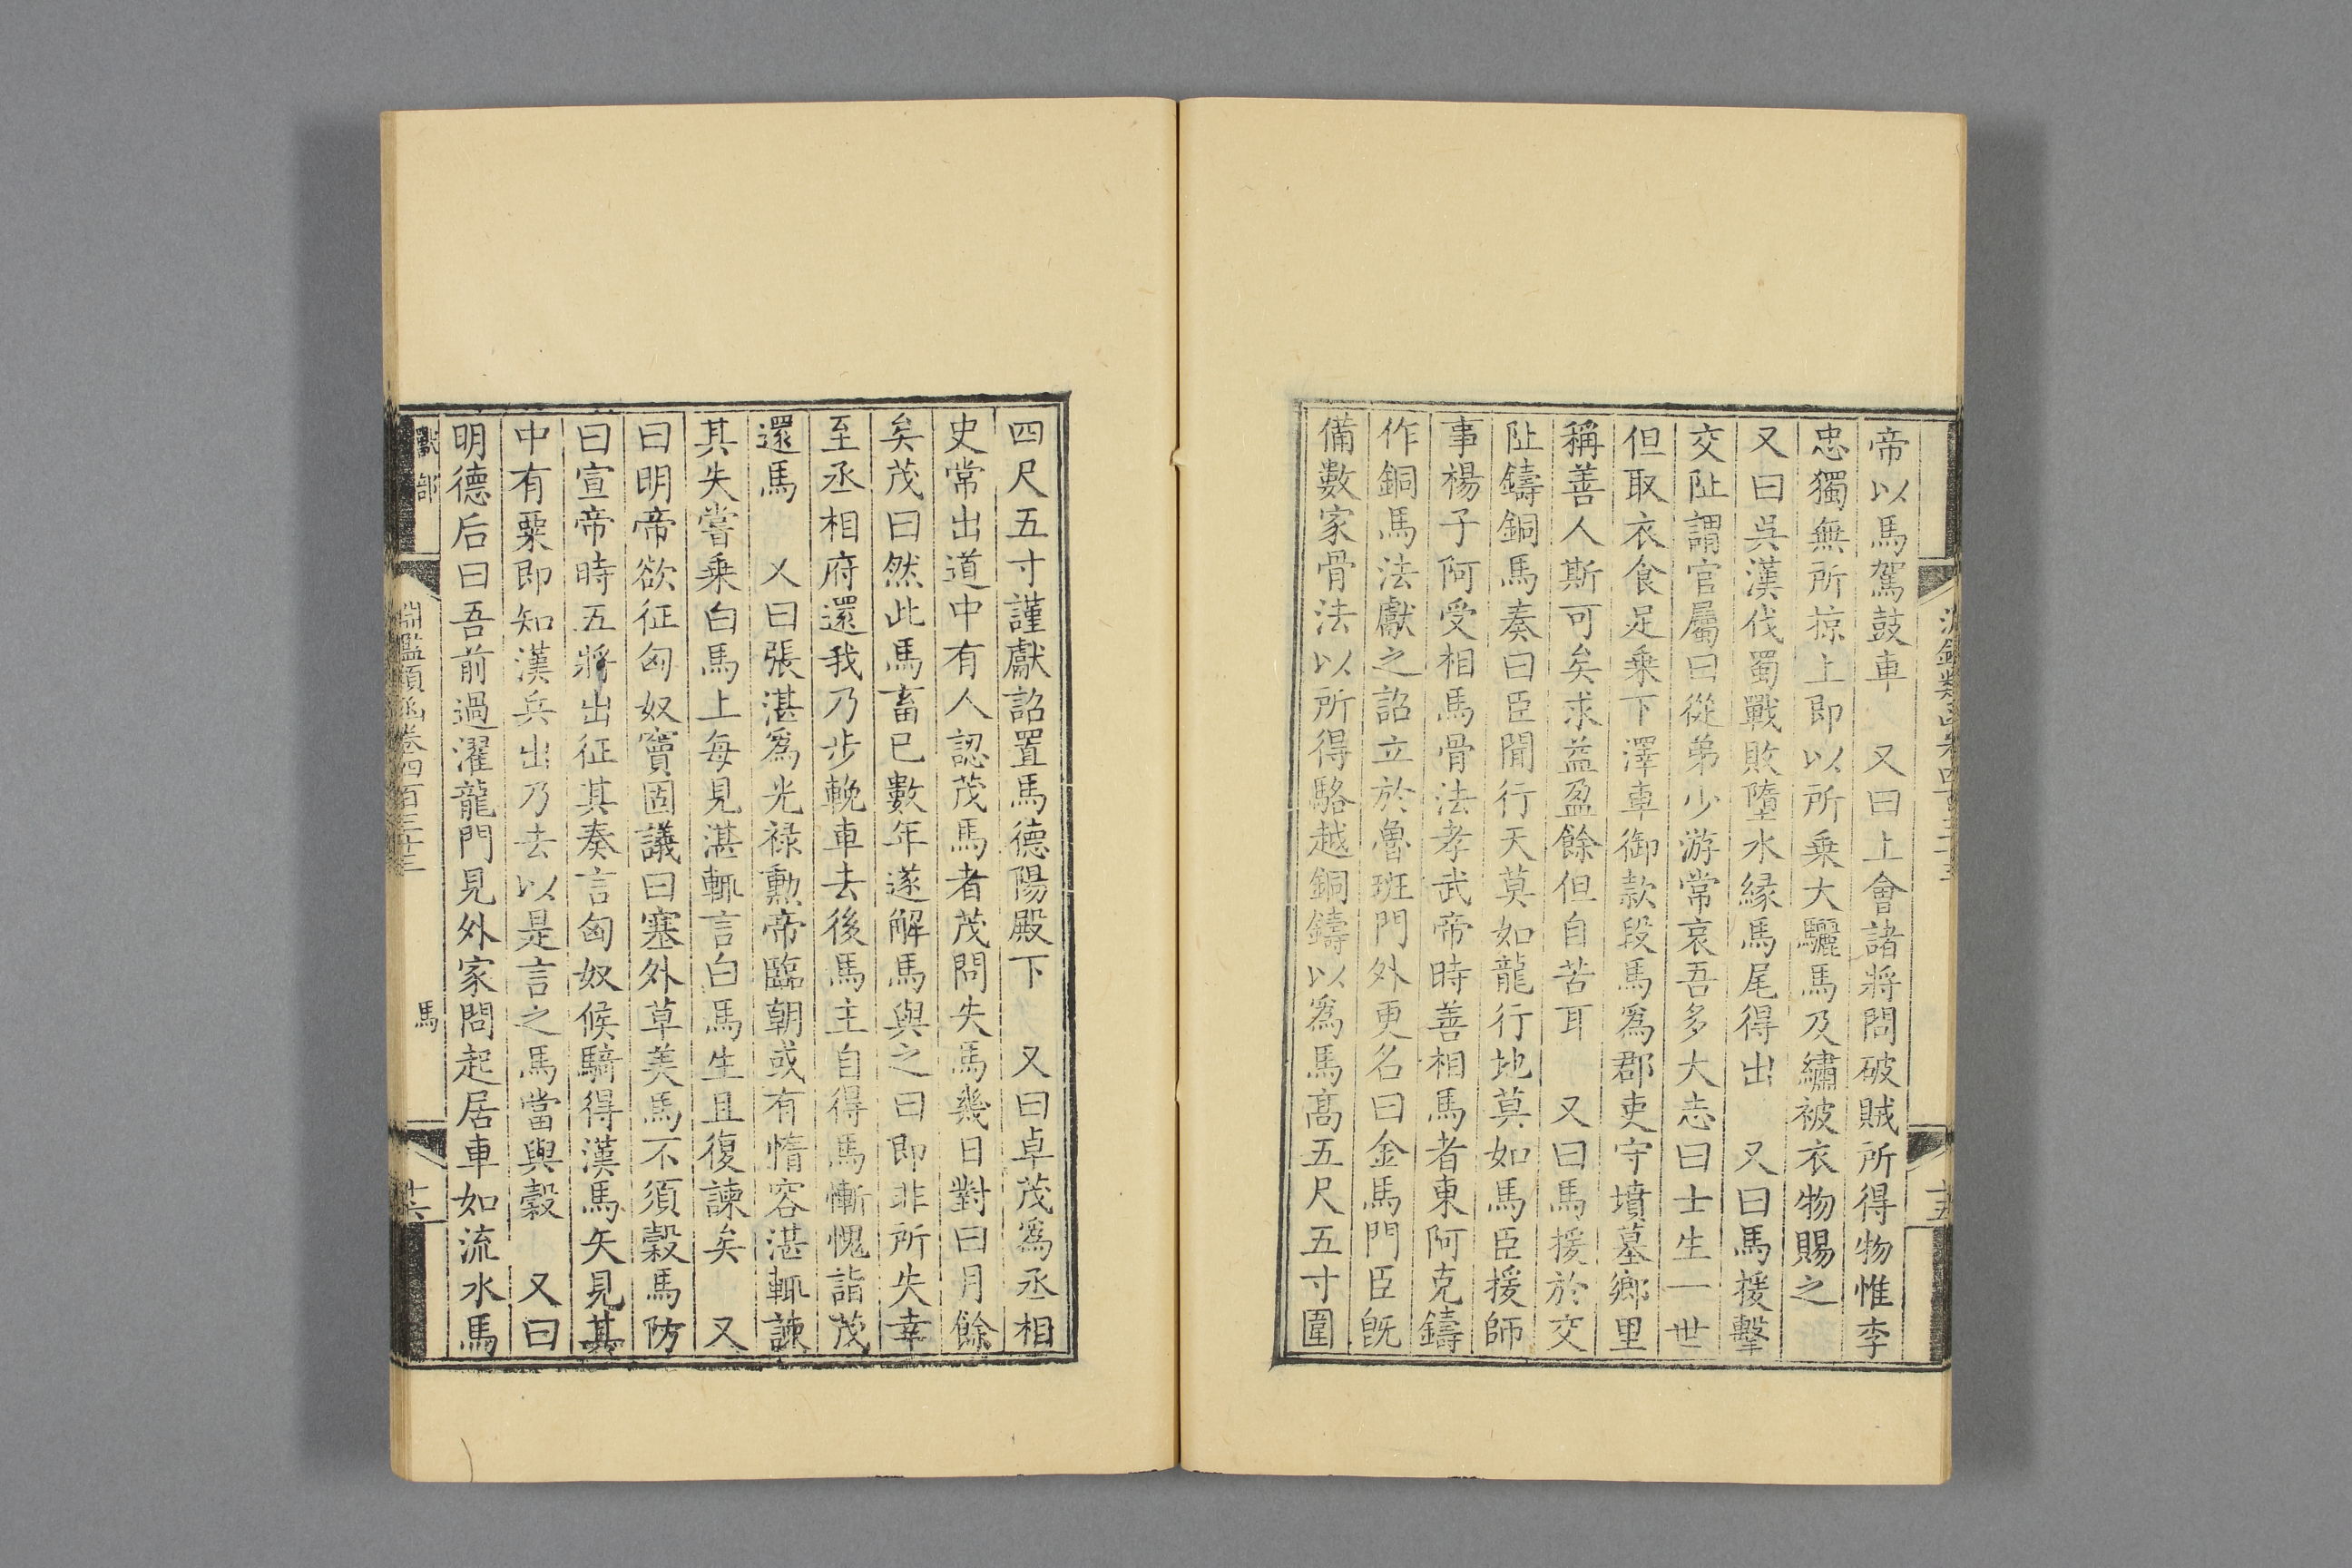 帝以馬駕鼓車　又曰上會諸將問破賊所得物惟李
忠獨無所掠上即以所乗大驪馬及繡被衣物賜之
又曰吳漢伐蜀戰敗墮水縁馬尾得出　又曰馬援擊
交阯謂官屬曰從弟少游常哀吾多大志曰士生一世
但取衣食足乗下澤車御款段馬爲郡吏守墳墓鄉里
稱善人斯可矣求益盈餘但自苦耳　又曰馬援於交
阯鑄銅馬奏曰臣聞行天莫如龍行地莫如馬臣援師
事楊子阿受相馬骨法孝武帝時善相馬者東阿克鑄
作銅馬法獻之詔立於魯班門外更名曰金馬門臣既
備數家骨法以所得駱越銅鑄以爲馬髙五尺五寸圍
四尺五寸謹獻詔置馬德陽殿下　又曰卓茂爲丞相
史常出道中有人認茂馬者茂問失馬幾日對曰月餘
矣茂曰然此馬畜已數年遂解馬與之曰即非所失幸
至丞相府還我乃步輓車去後馬主自得馬慚愧詣茂
還馬　又曰張湛爲光祿勲帝臨朝或有惰容湛輒諌
其失嘗乗白馬上每見湛輒言白馬生且復諫矣　又
曰明帝欲征匈奴竇固議曰塞外草美馬不須穀馬防
曰宣帝時五將出征其奏言匈奴候騎得漢馬矢見其
中有粟即知漢兵出乃去以是言之馬當與穀　又曰
明德后曰吾前過濯龍門見外家問起居車如流水馬
獸部
淵鑑類函卷四百三十三
馬
十六